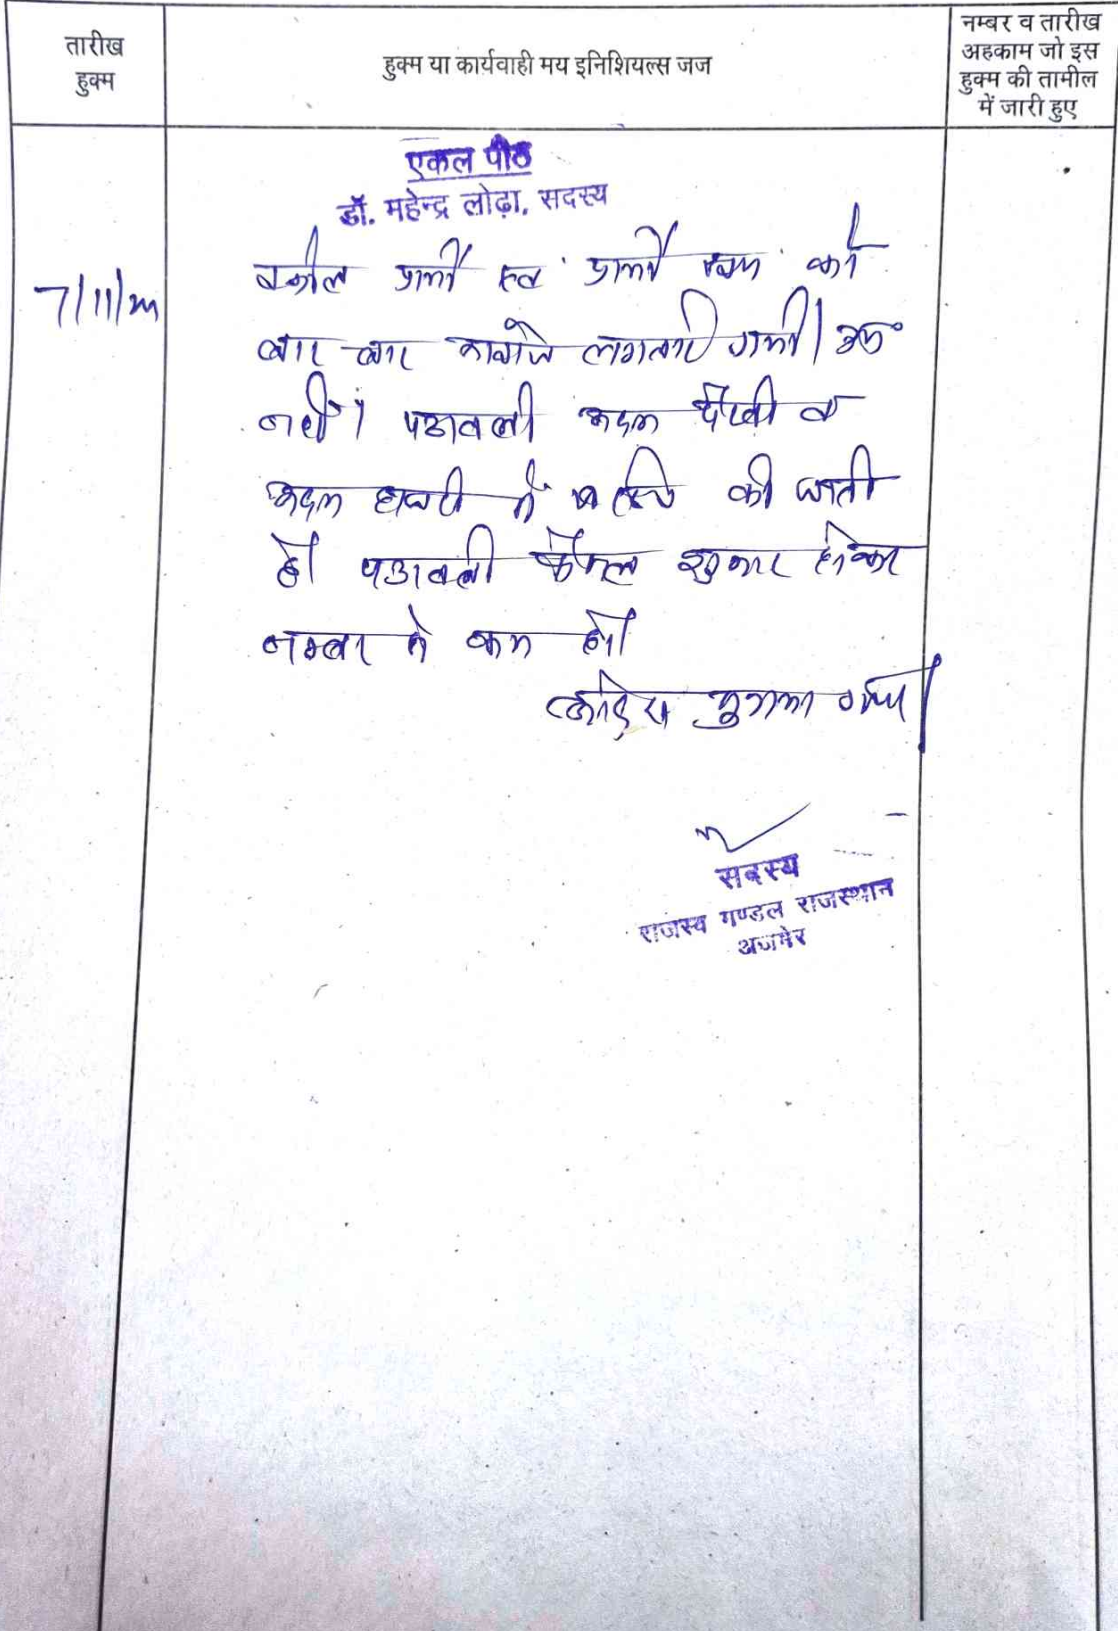 तारीख
हुक्म
हुक्म या कार्यवाही मय इनिशियल्स जज
नम्बर व तारीख
अहकाम जो इस
हुक्म की तामील
में जारी हुए
एकल पीठ
डॉ. महेन्द्र लोढ़ा, सदस्य
7/11/
वकील प्रार्थी एवं प्रार्थी स्वयं को
बार-बार आवाजें लगवाई गयी।
नहीं। पत्रावली अदम पैरवी व
अदम हाजरी में की जाती
है। पत्रावली फैसल शुमार होकर
नम्बर से कम हो।
आदेश सुनाया गया।
सदस्य
राजस्व मण्डल राजस्थान
अजमेर